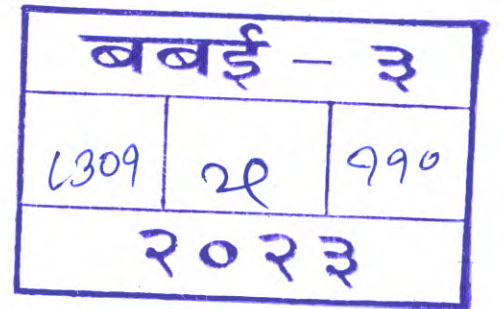 बबई - ३
८३०१ ११०
२०२३